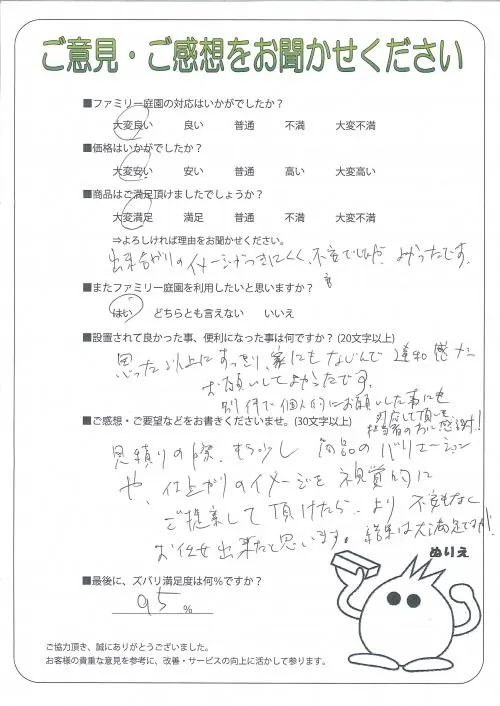 ご意見・ご感想をお聞かせください
■ファミリー庭園の対応はいかがでしたか？
大変良い 良い 普通 不満 大変不満
■価格はいかがでしたか？
大変安い 安い 普通 高い 大変高い
■商品はご満足頂けましたでしょうか？
大変満足 満足 普通 不満 大変不満
⇒よろしければ理由をお聞かせください。
出来上がりのイメージがつきにくく、不安でしたが よかったです。
■またファミリー庭園を利用したいと思いますか？
はい どちらとも言えない いいえ
■設置されて良かった事、便利になった事は何ですか？(20文字以上)
思った以上にすっきり、家にもなじんで 違和感なく
お願いしてよかったです。
別件で個人的にお願いした事にも
対応して頂いた
担当者の方に感謝！
■ご感想・ご要望などをお書きくださいませ。(30文字以上)
見積りの際、もう少し 商品のバリエーション
や、仕上がりのイメージを視覚的に
ご提案して頂けたら、より 不安もなく
お任せ出来たと思います。結果は大満足ですが！
ぬりえ
■最後に、ズバリ満足度は何％ですか？
95 %
ご協力頂き、誠にありがとうございました。
お客様の貴重な意見を参考に、改善・サービスの向上に活かして参ります。